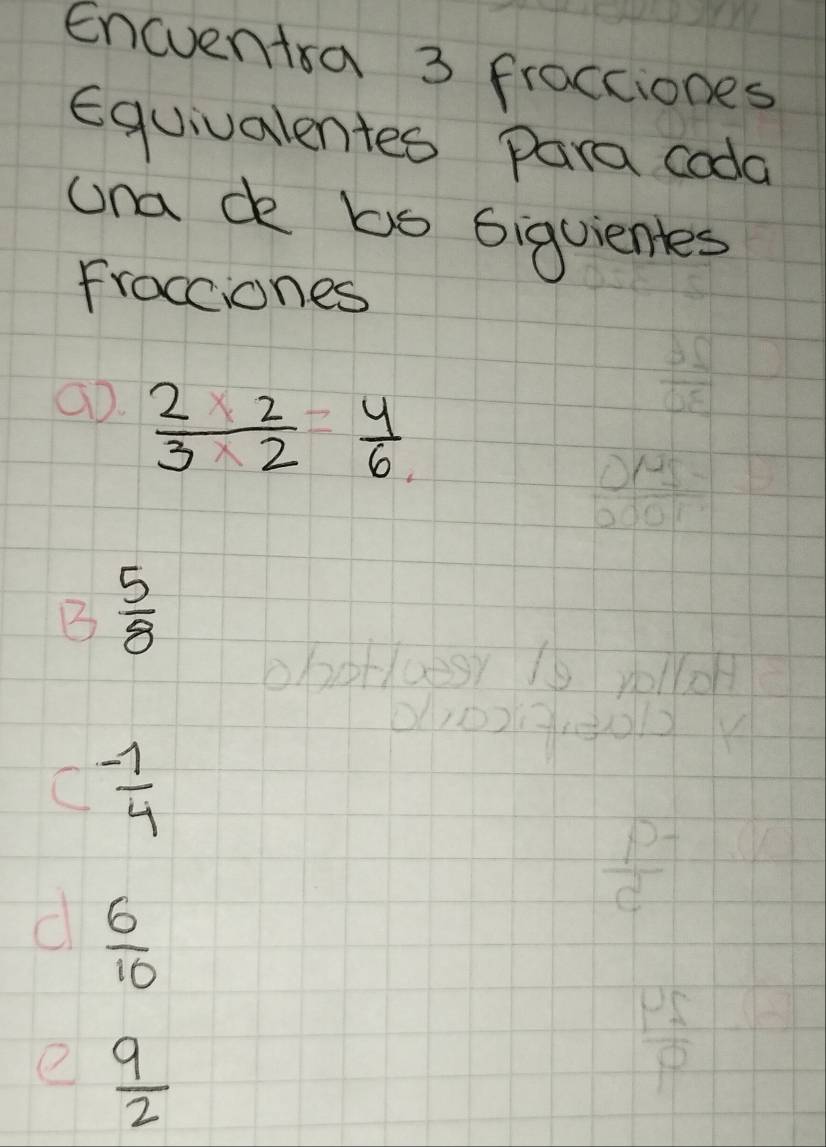 Encuentra 3 fracciones
Equivalentes Para cada
una de las siguientes
Fracciones
a). 2 x 2 / 3 x 2 = 4/6.
B 5/8
C -1/4
d 6/10
e 9/2